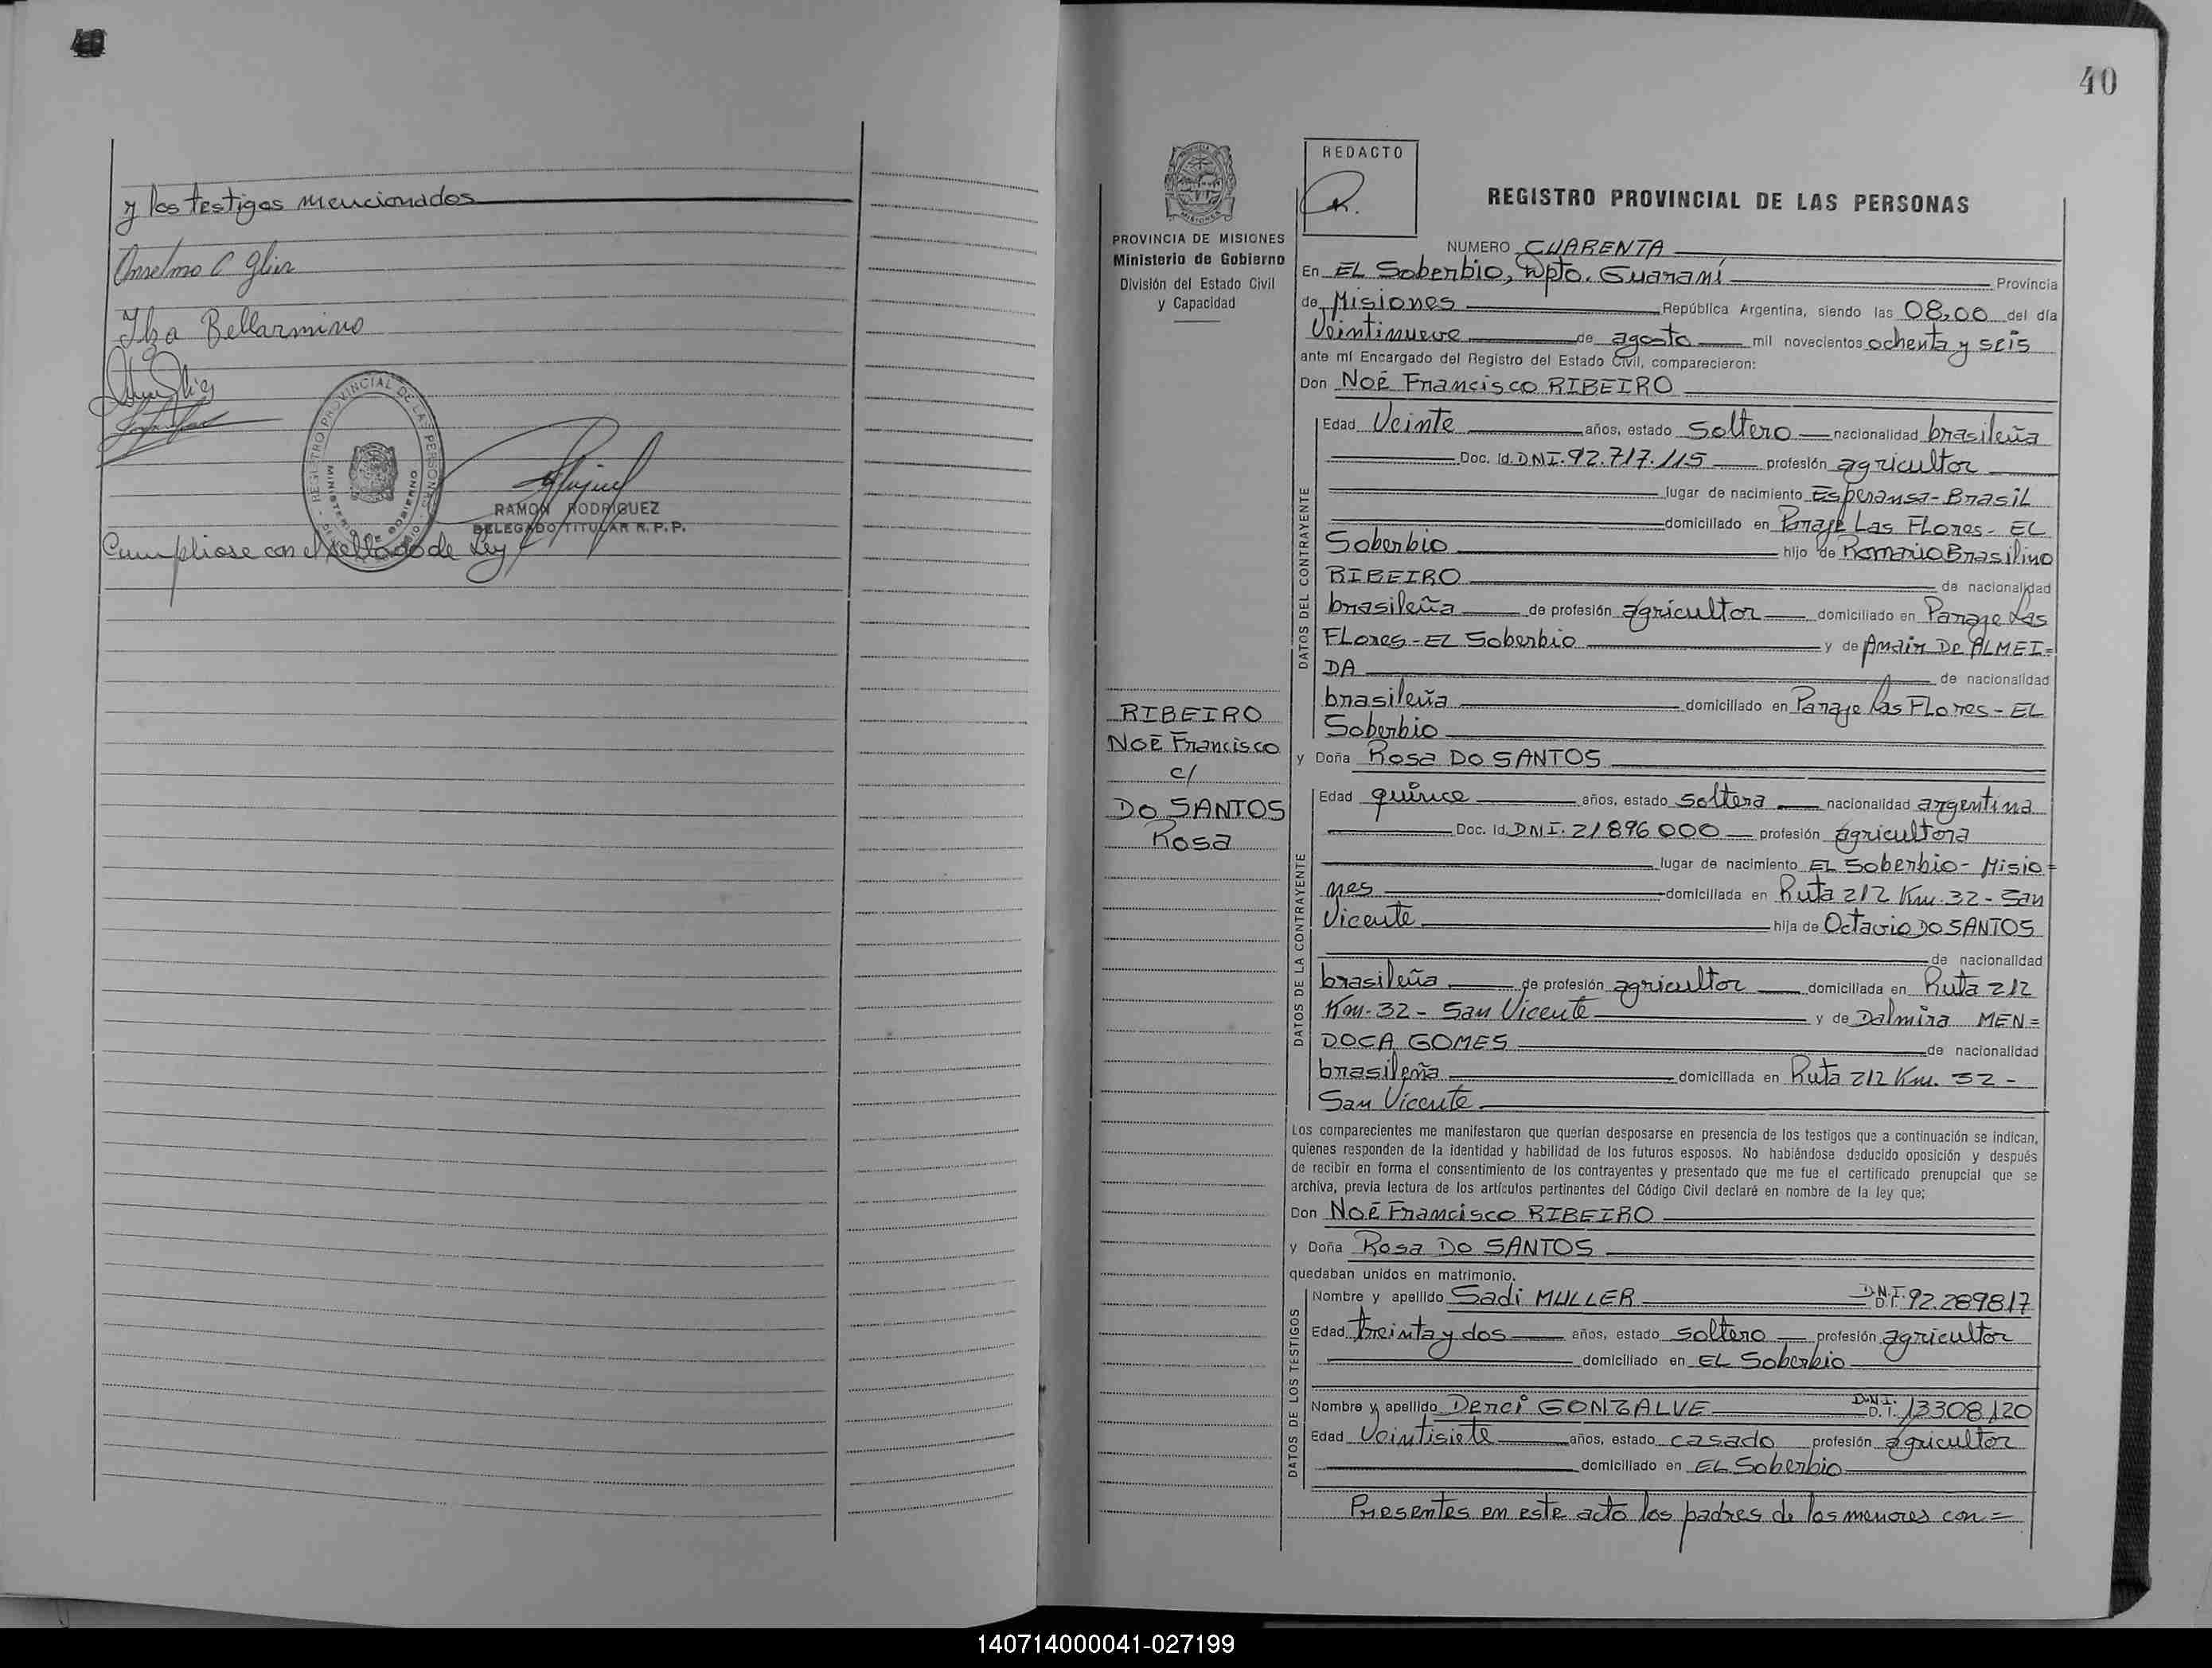 y los testigos mencionados
Anselmo C Glier
Ilza Bellarmino
REGISTRO PROVINCIAL DE LAS PERSONAS
MINISTERIO DE GOBIERNO
RAMON RODRIGUEZ
DELEGADO TITULAR R. P. P.
Cumpliose con el sellado de Ley
40
PROVINCIA DE MISIONES
Ministerio de Gobierno
División del Estado Civil
y Capacidad
RIBEIRO
Noé Francisco
c/
DO SANTOS
Rosa
REDACTO
REGISTRO PROVINCIAL DE LAS PERSONAS
NUMERO CUARENTA
En EL Soberbio, Dpto. Guaraní Provincia
de Misiones República Argentina, siendo las 08,00 del día
Veintinueve de agosto mil novecientos ochenta y seis
ante mí Encargado del Registro del Estado Civil, comparecieron:
Don Noé Francisco RIBEIRO
DATOS DEL CONTRAYENTE
Edad Veinte años, estado Soltero nacionalidad brasileña
Doc. Id. DNI. 92.717.115 profesión agricultor
lugar de nacimiento Esperansa - Brasil
domiciliado en Paraje Las Flores - EL
Soberbio hijo de Romario Brasilino
RIBEIRO de nacionalidad
brasileña de profesión agricultor domiciliado en Paraje Las
Flores - EL Soberbio y de Amair DE ALMEI=
DA de nacionalidad
brasileña domiciliado en Paraje Las Flores - EL
Soberbio
y Doña Rosa DO SANTOS
DATOS DE LA CONTRAYENTE
Edad quince años, estado soltera nacionalidad argentina
Doc. Id. DNI. 21896000 profesión agricultora
lugar de nacimiento EL Soberbio - Misio=
nes domiciliada en Ruta 212 Km. 32 - San
Vicente hija de Octavio DO SANTOS
de nacionalidad
brasileña de profesión agricultor domiciliada en Ruta 212
Km. 32 - San Vicente y de Dalmira MEN=
DOCA GOMES de nacionalidad
brasileña domiciliada en Ruta 212 Km. 32 -
San Vicente
Los comparecientes me manifestaron que querían desposarse en presencia de los testigos que a continuación se indican,
quienes responden de la identidad y habilidad de los futuros esposos. No habiéndose deducido oposición y después
de recibir en forma el consentimiento de los contrayentes y presentado que me fue el certificado prenupcial que se
archiva, previa lectura de los artículos pertinentes del Código Civil declaré en nombre de la ley que:
Don Noé Francisco RIBEIRO
y Doña Rosa DO SANTOS
quedaban unidos en matrimonio.
DATOS DE LOS TESTIGOS
Nombre y apellido Sadi MULLER D.N.I. D. I. 92.289817
Edad treinta y dos años, estado soltero profesión agricultor
domiciliado en EL Soberbio
Nombre y apellido Derci GONZALVE D.N.I. D. I. 13308120
Edad Veintisiete años, estado casado profesión agricultor
domiciliado en EL Soberbio
Presentes en este acto los padres de los menores con=
140714000041-027199